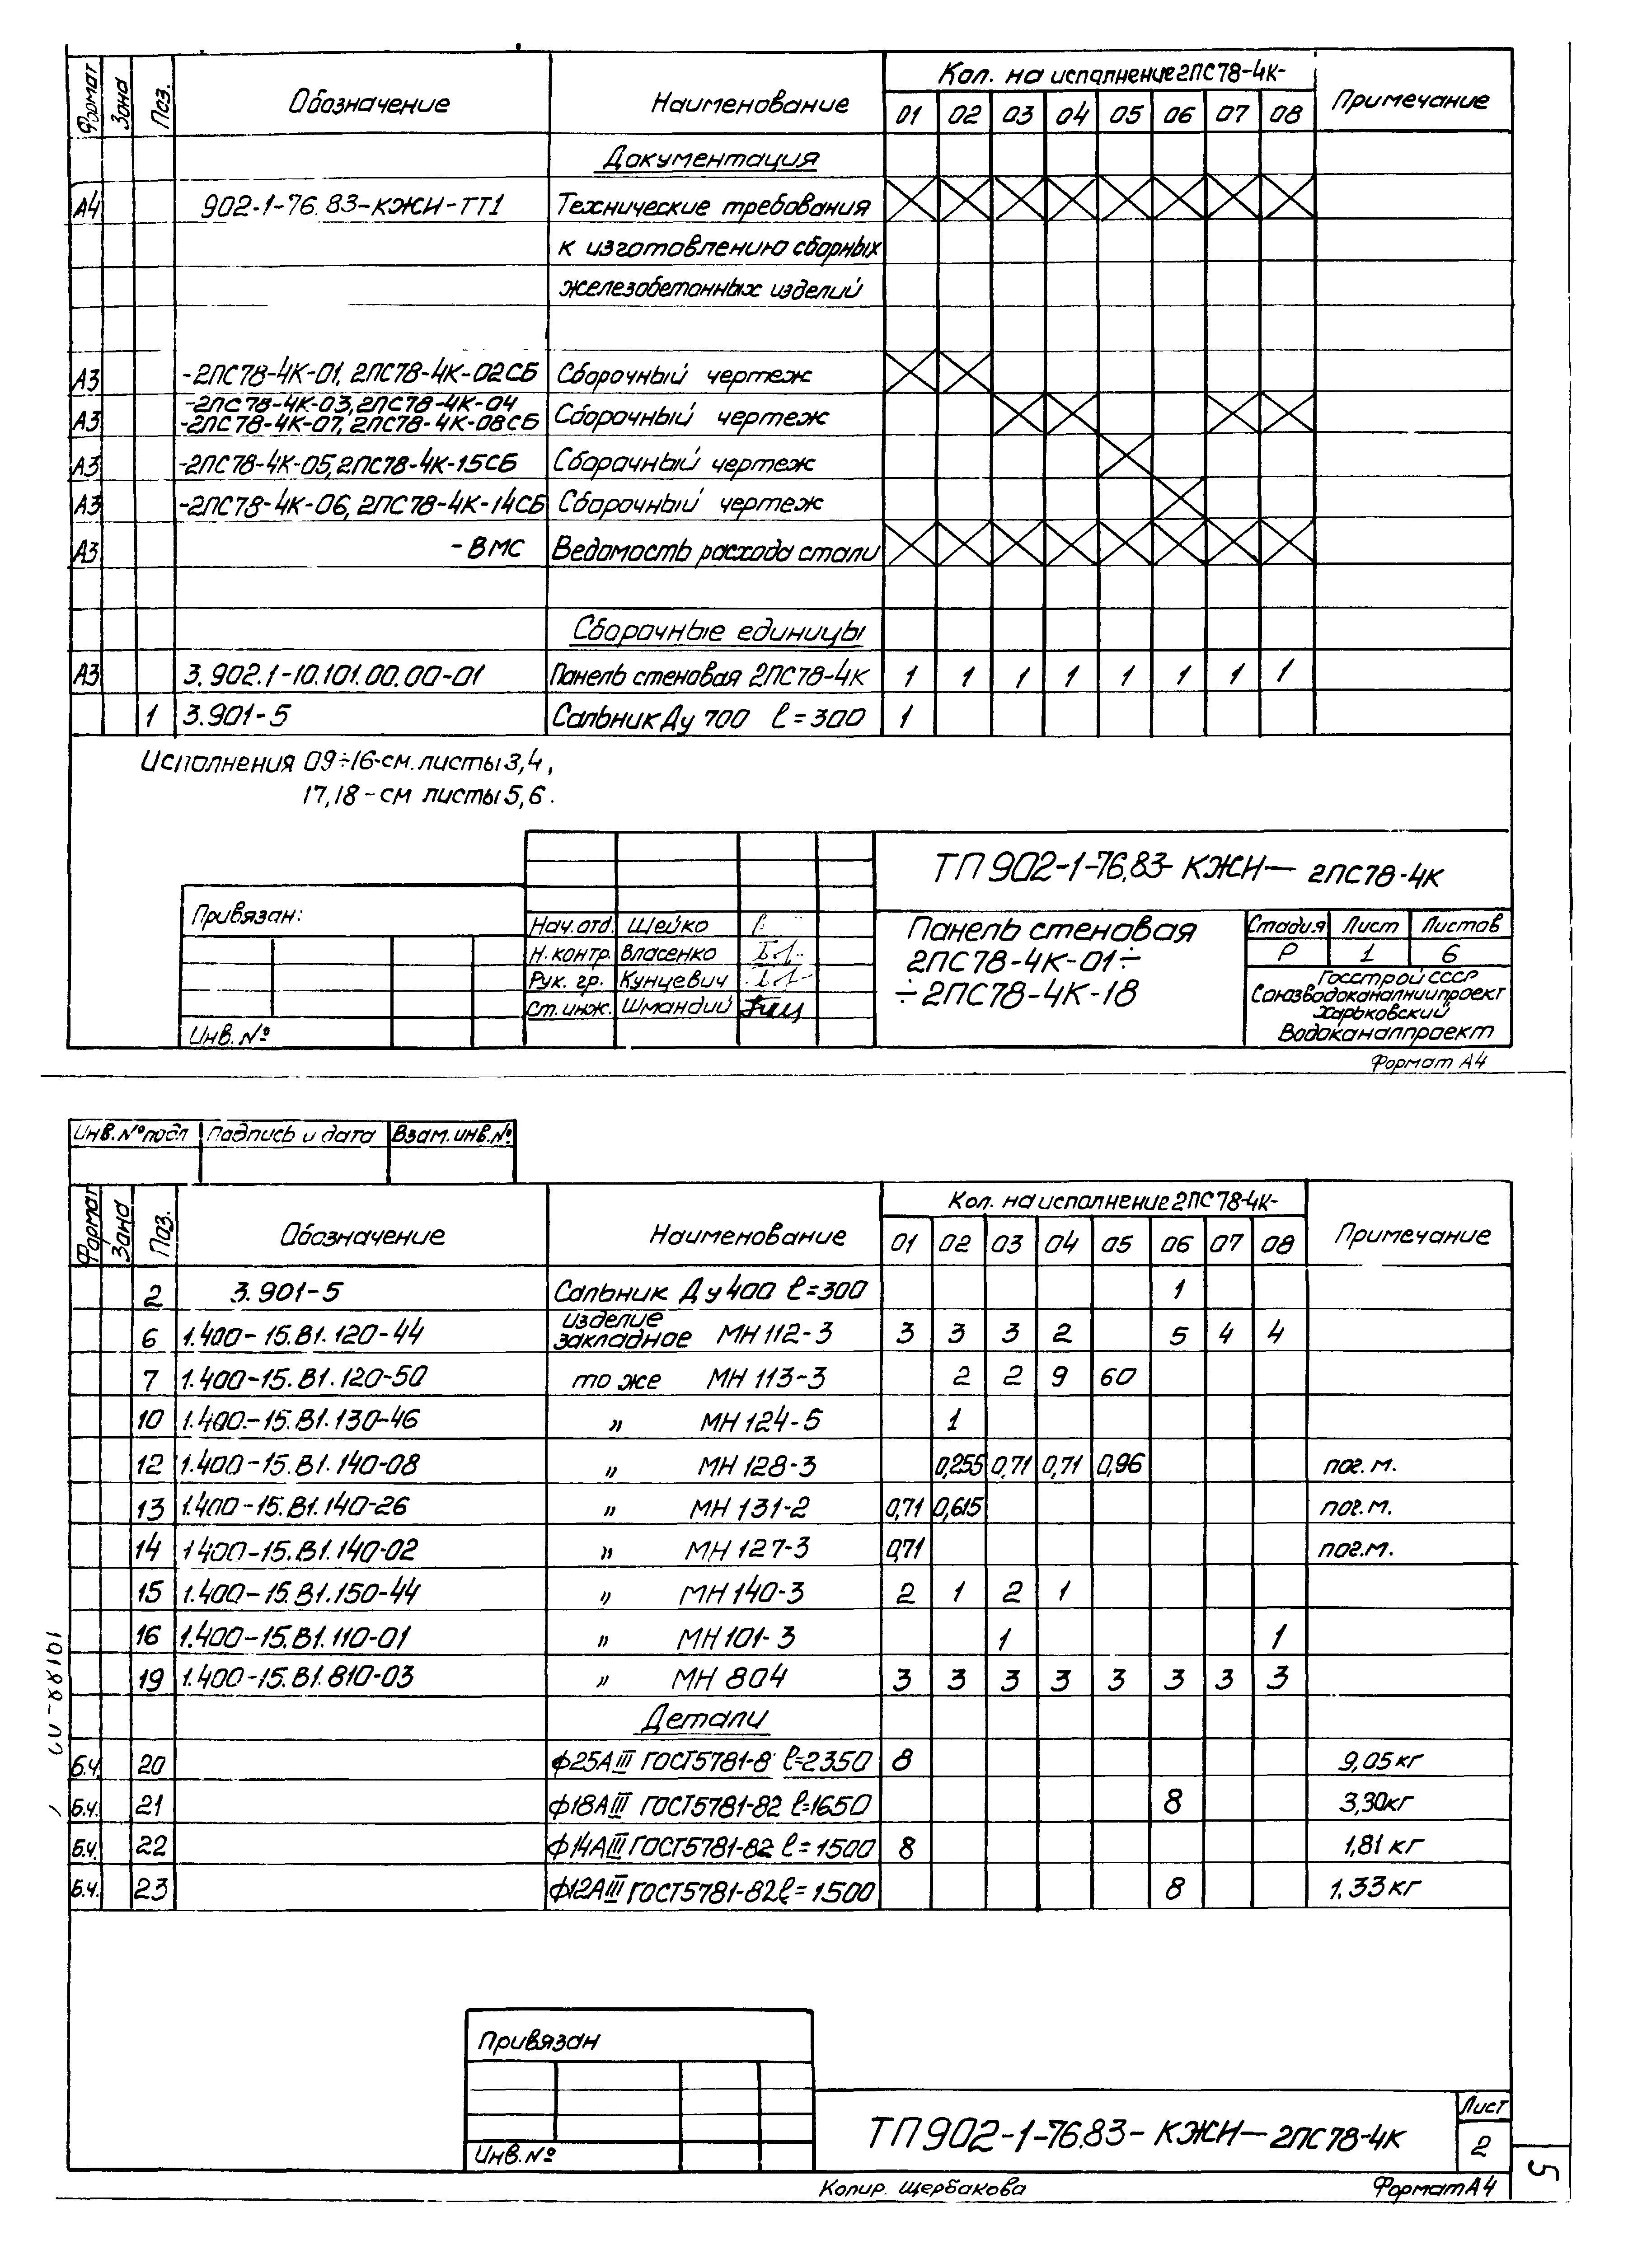 Формат Зона Поз. Обозначение Наименование Кол. на исполнение 2ПС78-4К- Примечание
01 02 03 04 05 06 07 08
Документация
А4 902-1-76.83-КЖИ-ТТ1 Технические требования
к изготовлению сборных
железобетонных изделий
А3 -2ПС78-4К-01, 2ПС78-4К-02СБ Сборочный чертеж
-2ПС78-4К-03, 2ПС78-4К-04
А3 -2ПС78-4К-07, 2ПС78-4К-08СБ Сборочный чертеж
А3 -2ПС78-4К-05, 2ПС78-4К-15СБ Сборочный чертеж
А3 -2ПС78-4К-06, 2ПС78-4К-14СБ Сборочный чертеж
А3 -ВМС Ведомость расхода стали
Сборочные единицы
А3 3.902.1-10.101.00.00-01 Панель стеновая 2ПС78-4К 1 1 1 1 1 1 1 1
1 3.901-5 Сальник Ду 700 ℓ=300 1
Исполнения 09÷16-см. листы 3,4,
17,18-см листы 5,6.
ТП 902-1-76.83- КЖИ— 2ПС78-4К
Привязан:
Нач. отд. Шейко
Н. контр. Власенко
Рук. гр. Кунцевич
Ст. инж. Шмандий
Инв. №
Панель стеновая
2ПС78-4К-01÷
÷2ПС78-4К-18
Стадия Лист Листов
Р 1 6
Госстрой СССР
Союзводоканалниипроект
Харьковский
Водоканалпроект
Формат А4
Инв. № подл Подпись и дата Взам. инв. №
Формат Зона Поз. Обозначение Наименование Кол. на исполнение 2ПС78-4К- Примечание
01 02 03 04 05 06 07 08
2 3.901-5 Сальник Ду 400 ℓ=300 1
изделие
6 1.400-15.В1.120-44 закладное МН 112-3 3 3 3 2 5 4 4
7 1.400-15.В1.120-50 то же МН 113-3 2 2 9 60
10 1.400-15.В1.130-46 " МН 124-5 1
12 1.400-15.В1.140-08 " МН 128-3 0,255 0,71 0,71 0,96 пог. м.
13 1.400-15.В1.140-26 " МН 131-2 0,71 0,615 пог. м.
14 1400-15.В1.140-02 " МН 127-3 0,71 пог. м.
15 1.400-15.В1.150-44 " МН 140-3 2 1 2 1
16 1.400-15.В1.110-01 " МН 101-3 1 1
19 1.400-15.В1.810-03 " МН 804 3 3 3 3 3 3 3 3
Детали
Б.ч. 20 ф25АIII ГОСТ5781-8 ℓ=2350 8 9,05 кг
Б.ч. 21 ф18АIII ГОСТ5781-82 ℓ=1650 8 3,30кг
Б.ч. 22 ф14АIII ГОСТ5781-82 ℓ=1500 8 1,81 кг
Б.ч. 23 ф12АIII ГОСТ5781-82 ℓ=1500 8 1.33 кг
Привязан
Инв. №
ТП 902-1-76.83- КЖИ— 2ПС78-4К
Лист
2
5
Копир. Щербакова Формат А4